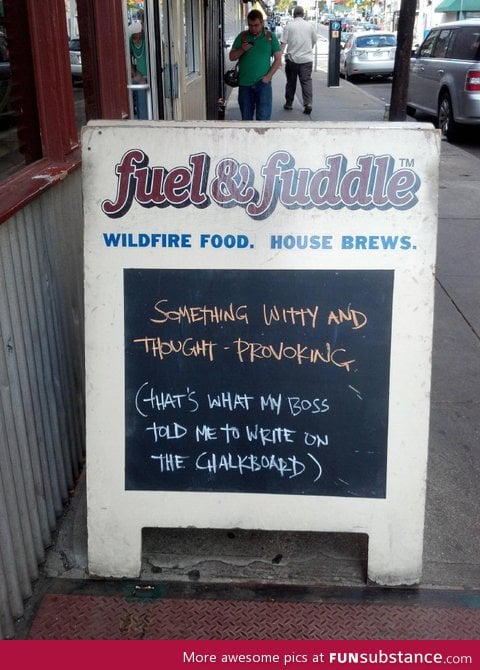 fuel & fuddle™
WILDFIRE FOOD. HOUSE BREWS.
SOMETHING WITTY AND
THOUGHT-PROVOKING.
(THAT'S WHAT MY BOSS
TOLD ME TO WRITE ON
THE CHALKBOARD)
More awesome pics at FUNsubstance.com